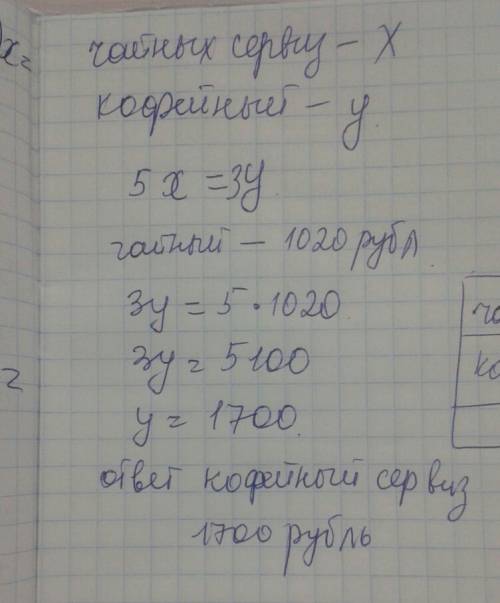 x=
чайных сервиз - X
кофейный - y
5x = 3y
чайный - 1020 рубл
3y = 5 · 1020
3y = 5100
2
y = 1700
ответ кофейный сервиз
1700 рубль
ча
ко